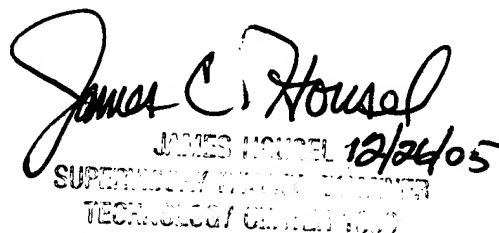 James C. Housel
JAMES HOUSEL 12/26/05
SUPERVISORY PATENT EXAMINER
TECHNOLOGY CENTER